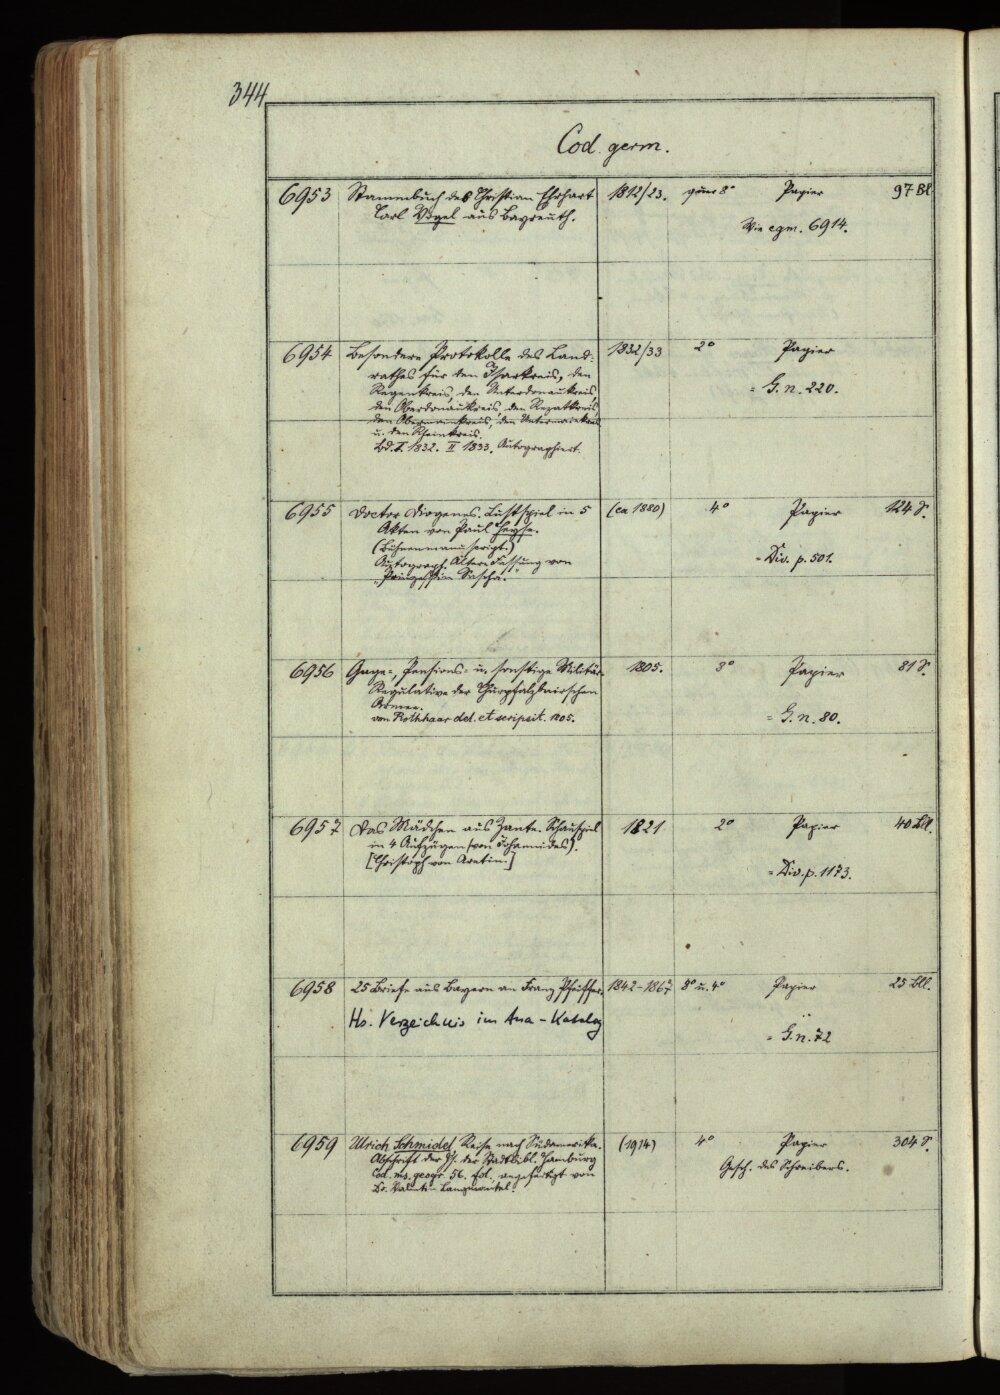 344
Cod. germ.
6953 Stammbuch des Christian Ehrhart 1812/23. quer 8° Papier 97 Bl.
Carl Vogel aus Bayreuth. Wie cgm. 6914.
6954 Besondere Protokolle des Land- 1832/33 2° Papier
rathes für den Isarkreis, den = G. n. 220.
Regenkreis, den Unterdonaukreis,
den Oberdonaukreis, den Rezatkreis,
den Obermainkreis, den Untermainkreis
u. den Rheinkreis.
Bd. I. 1832. II 1833. Autographiert.
6955 Doctor Diogenes. Lustspiel in 5 (ca 1880) 4° Papier 124 S.
Akten von Paul Heyse.
(Bühnenmanuscript.) = Div. p. 501.
Autograph. Ältere Fassung von
„Prinzessin Sascha."
6956 Gage-, Pensions- u. sonstige Militär- 1805. 8° Papier 81 S.
Regulative der Churpfalzbairschen
Armee.
von Rothhaar del. et scripsit. 1805. = G. n. 80.
6957 Das Mädchen aus Zante. Schauspiel 1821 2° Papier 40 Bll.
in 4 Aufzügen (von Johannides).
[Christoph von Aretin.] = Div. p. 1173.
6958 25 Briefe aus Bayern an Franz Pfeiffer. 1842-1867 8° u. 4° Papier 25 Bll.
Hs. Verzeichnis im Ana-Katalog
= G. n. 72
6959 Ulrich Schmidel, Reise nach Südamerika. (1914) 4° Papier 304 S.
Abschrift der Hs. der Stadtbibl. Hamburg Gesch. des Schreibers.
Cod. ms. geogr. 56. fol., angefertigt von
Dr. Valentin Langmantel.